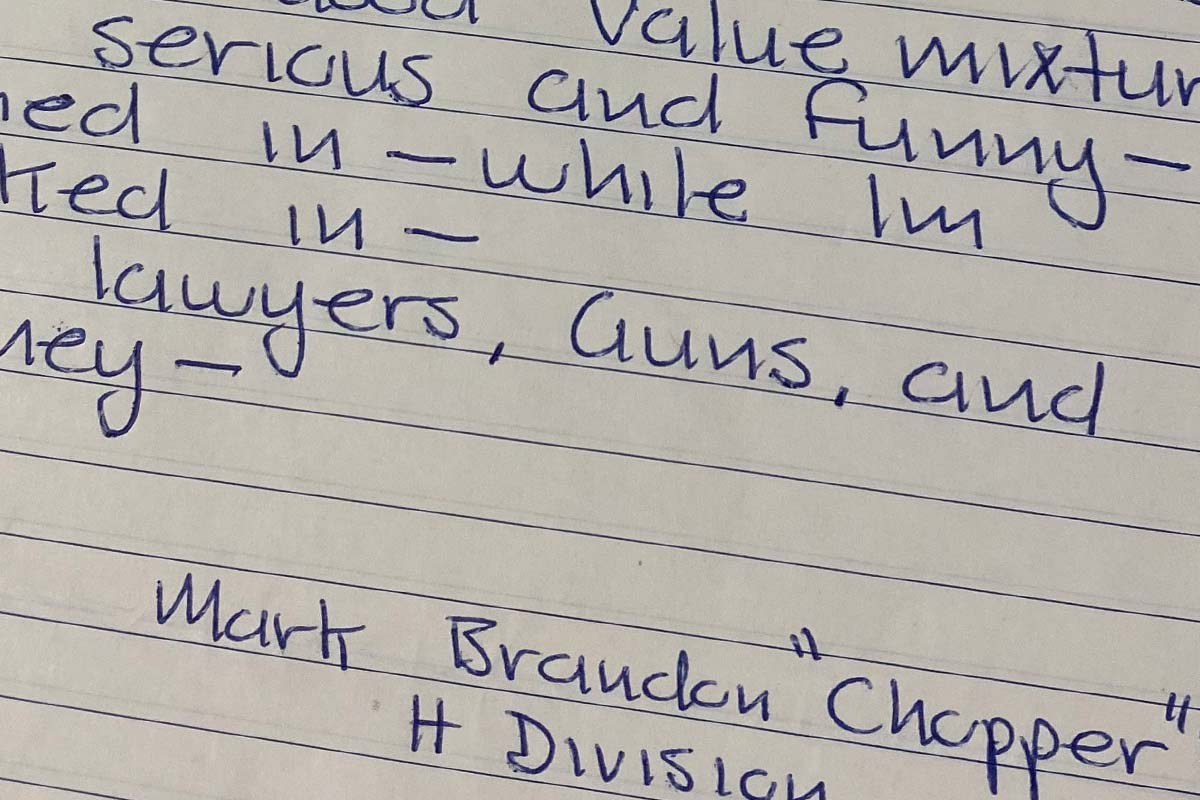 Value mixtur
serious and funny—
ned in — while Im
ked in —
lawyers, Guns, and
ney —
Mark Brandon "Chopper"
H Division